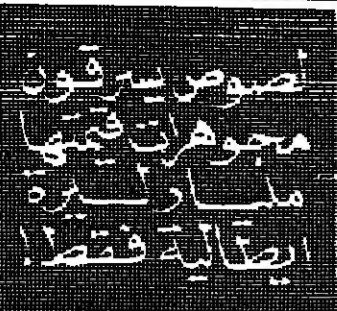 لصوص يسرقون
مجوهرات قيمتها
مليار ليرة
ايطالية فقط!